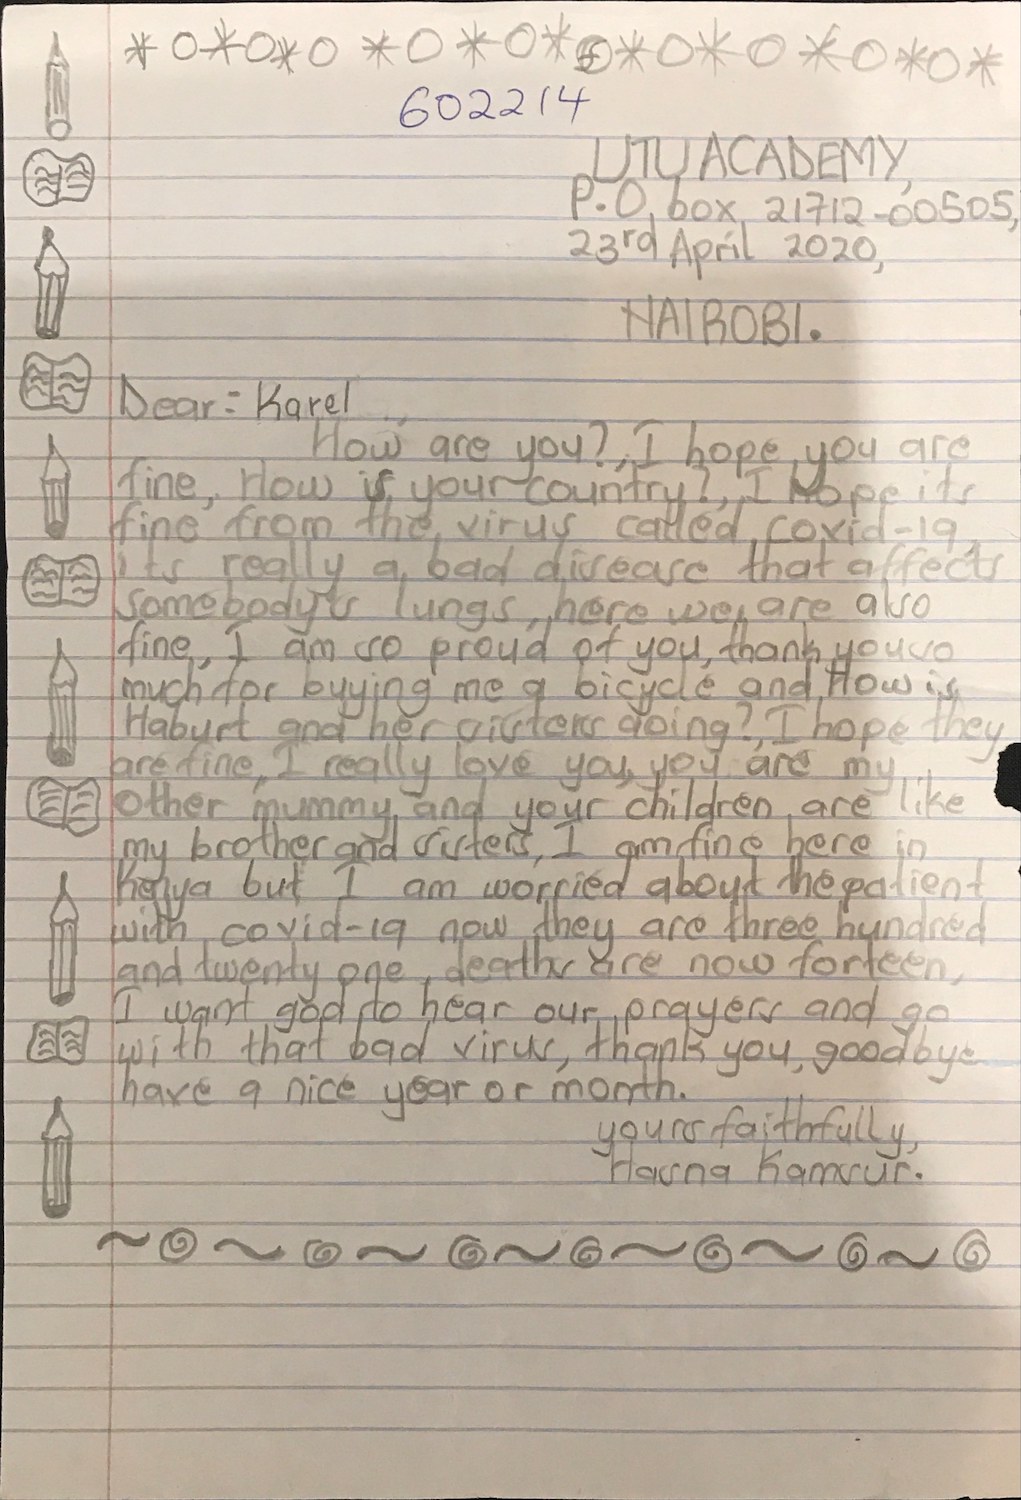 602214
UTU ACADEMY,
P.O. box 21712-00505,
23rd April 2020,
NAIROBI.
Dear = Karel
How are you?, I hope you are
fine, How is your country?, I hope its
fine from the virus called covid-19,
its really a bad disease that affects
somebody's lungs, here we are also
fine, I am so proud of you, thank you so
much for buying me a bicycle and How is
Haburt and her sisters doing?, I hope they
are fine, I really love you, you are my
other mummy and your children are like
my brother and sisters, I am fine here in
Kenya but I am worried about the patient
with covid-19 now they are three hundred
and twenty one, deaths are now forteen,
I want god to hear our prayers and go
with that bad virus, thank you, goodbye
have a nice year or month.
yours faithfully,
Hasna Kamsur.